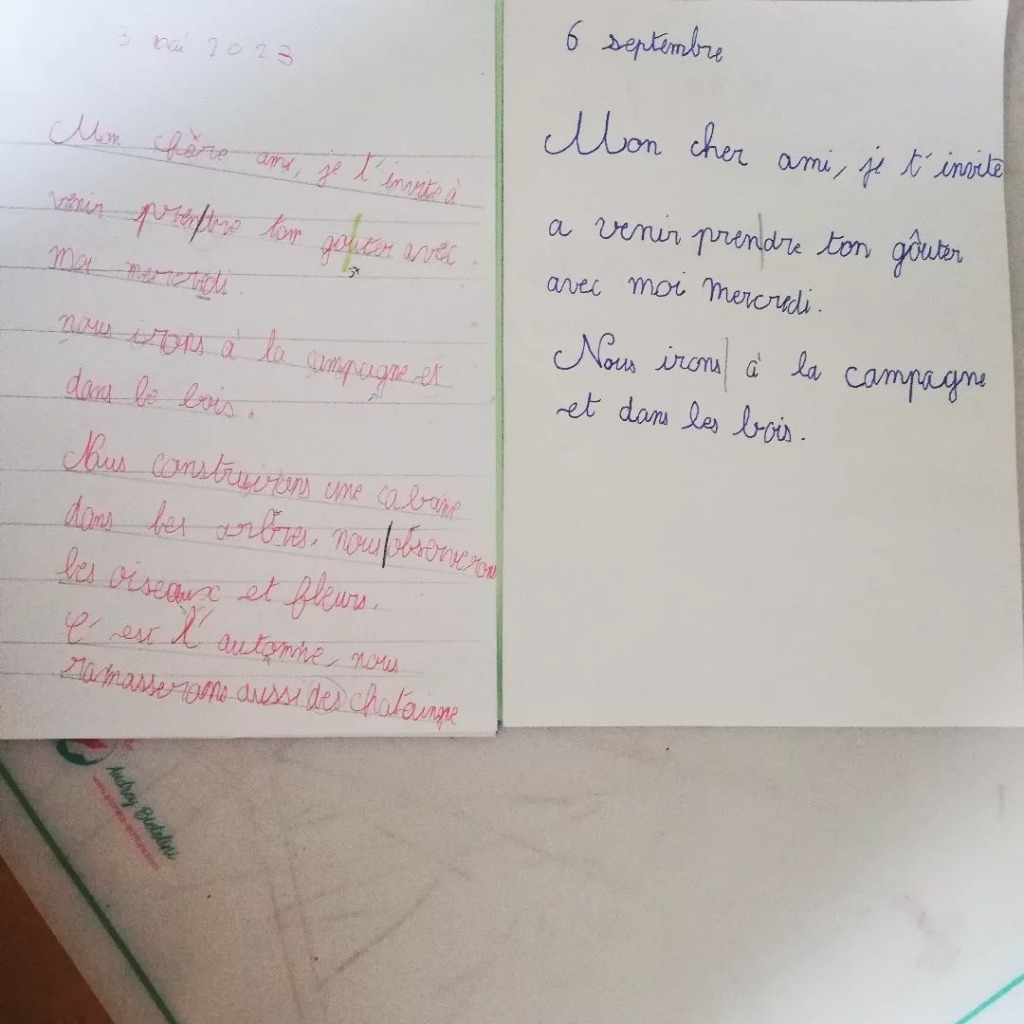 3 mai 2023
Mon chère ami, je t'invite à
venir prentre ton goûter avec
moi mercredi.
nous irons à la campagne et
dans le bois.
Nous construirons une cabane
dans les arbres, nous observerons
les oiseaux et fleurs.
C'est l'automne, nous
ramasserons aussi des chataingne
6 septembre
Mon cher ami, je t'invite
a venir prendre ton gôuter
avec moi mercredi.
Nous irons à la campagne
et dans les bois.
Audrey Bertolini